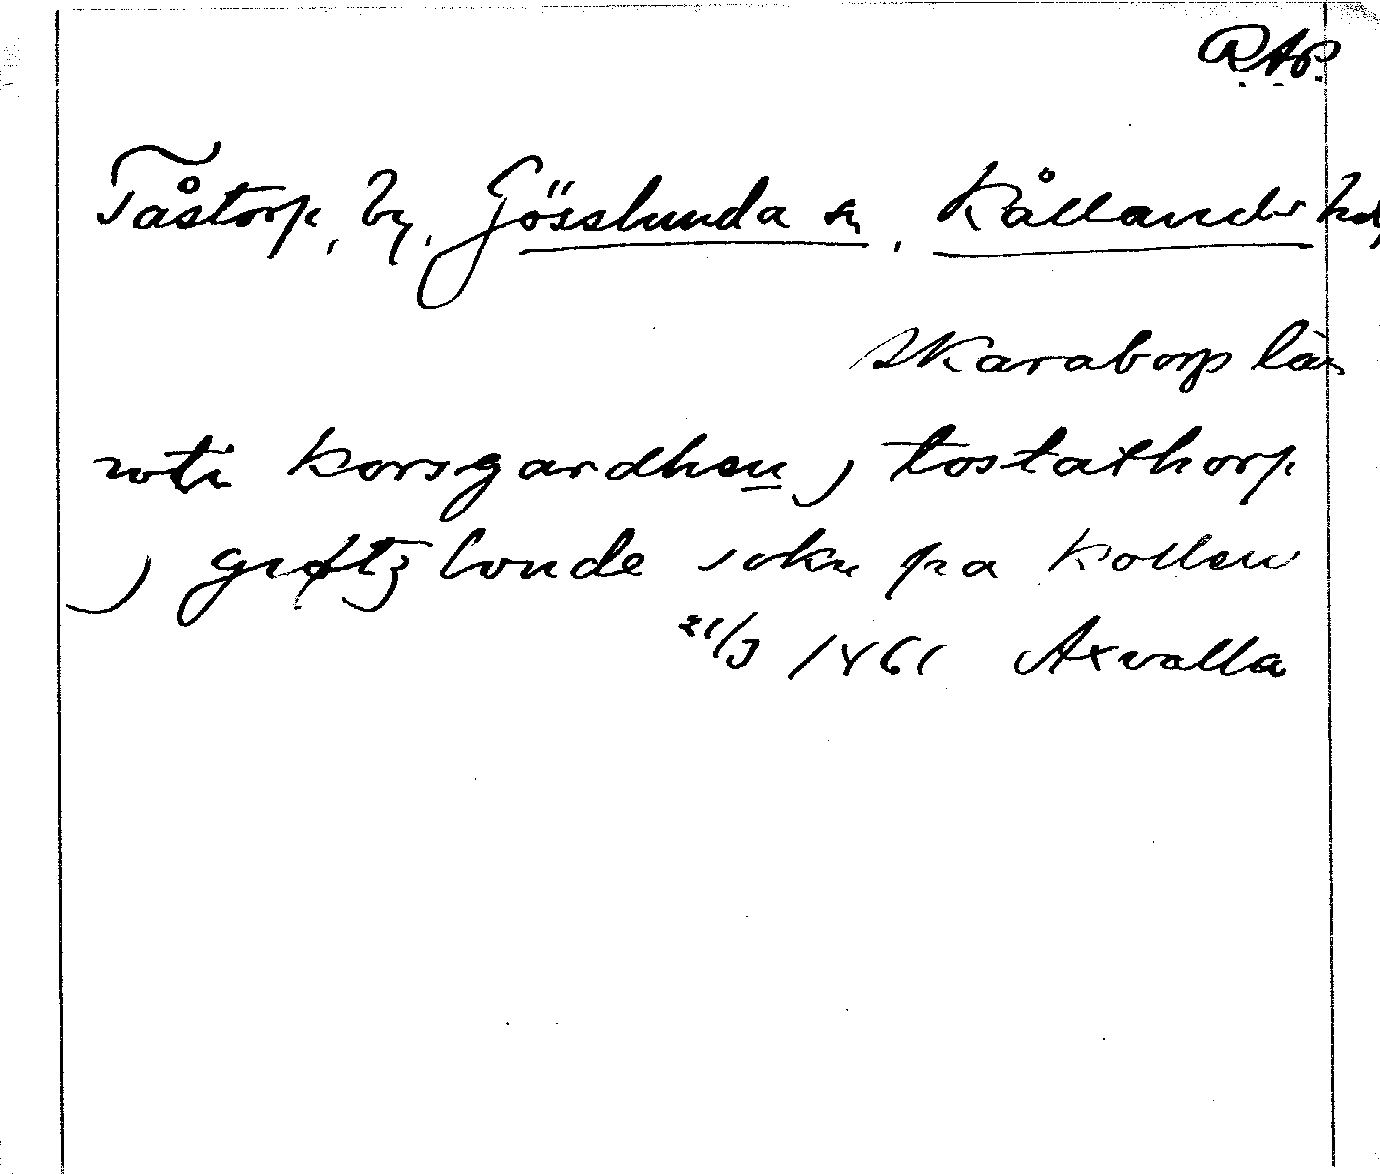 R.A.P.
Tåstorp, by, Gösslunda sn, Kållands hd,
Skaraborgs län
wti korsgardhen j tostathorp
j gutz lvnde sokn pa kollen
21/3 1461 Axvalla